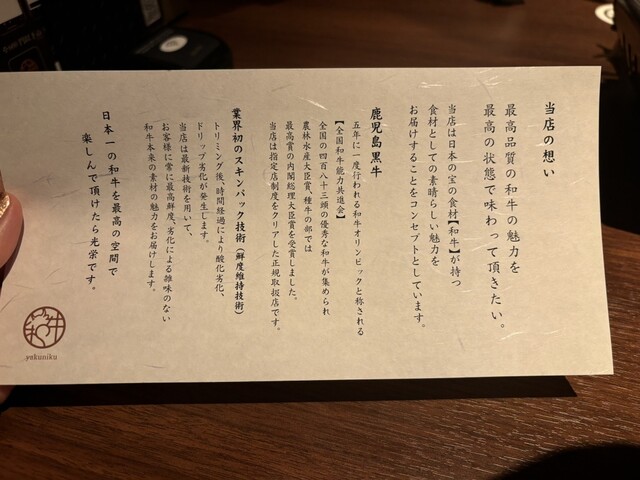 当店の想い
最高品質の和牛の魅力を
最高の状態で味わって頂きたい。
当店は日本の宝の食材【和牛】が持つ
食材としての素晴らしい魅力を
お届けすることをコンセプトとしています。
鹿児島黒牛
五年に一度行われる和牛オリンピックと称される
【全国和牛能力共進会】
全国の四百八十三頭の優秀な和牛が集められ
農林水産大臣賞、種牛の部では
最高賞の内閣総理大臣賞を受賞しました。
当店は指定店制度をクリアした正規取扱店です。
業界初のスキンパック技術（鮮度維持技術）
トリミング後、時間経過により酸化劣化、
ドリップ劣化が発生します。
当店は最新技術を用いて、
お客様に常に最高鮮度、劣化による雑味のない
和牛本来の素材の魅力をお届けします。
日本一の和牛を最高の空間で
楽しんで頂けたら光栄です。
yakuniku